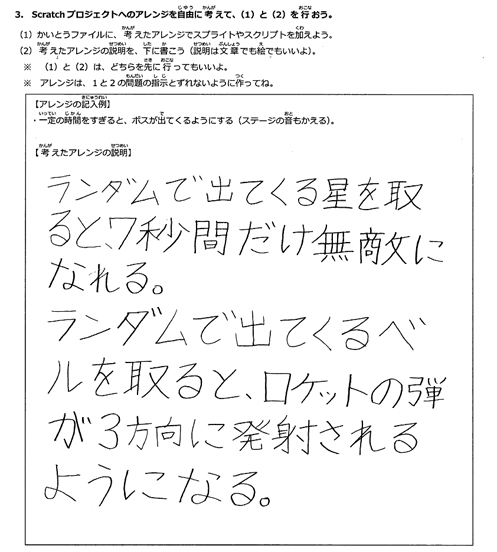 3. Scratchプロジェクトへのアレンジを自由に考えて、(1)と(2)を行おう。
(1) かいとうファイルに、考えたアレンジでスプライトやスクリプトを加えよう。
(2) 考えたアレンジの説明を、下に書こう(説明は文章でも絵でもいいよ)。
※ (1)と(2)は、どちらを先に行ってもいいよ。
※ アレンジは、1と2の問題の指示とずれないように作ってね。
【アレンジの記入例】
・一定の時間をすぎると、ボスが出てくるようにする(ステージの音もかえる)。
【考えたアレンジの説明】
ランダムで出てくる星を取
ると、7秒間だけ無敵に
なれる。
ランダムで出てくるベ
ルを取ると、ロケットの弾
が3方向に発射される
ようになる。